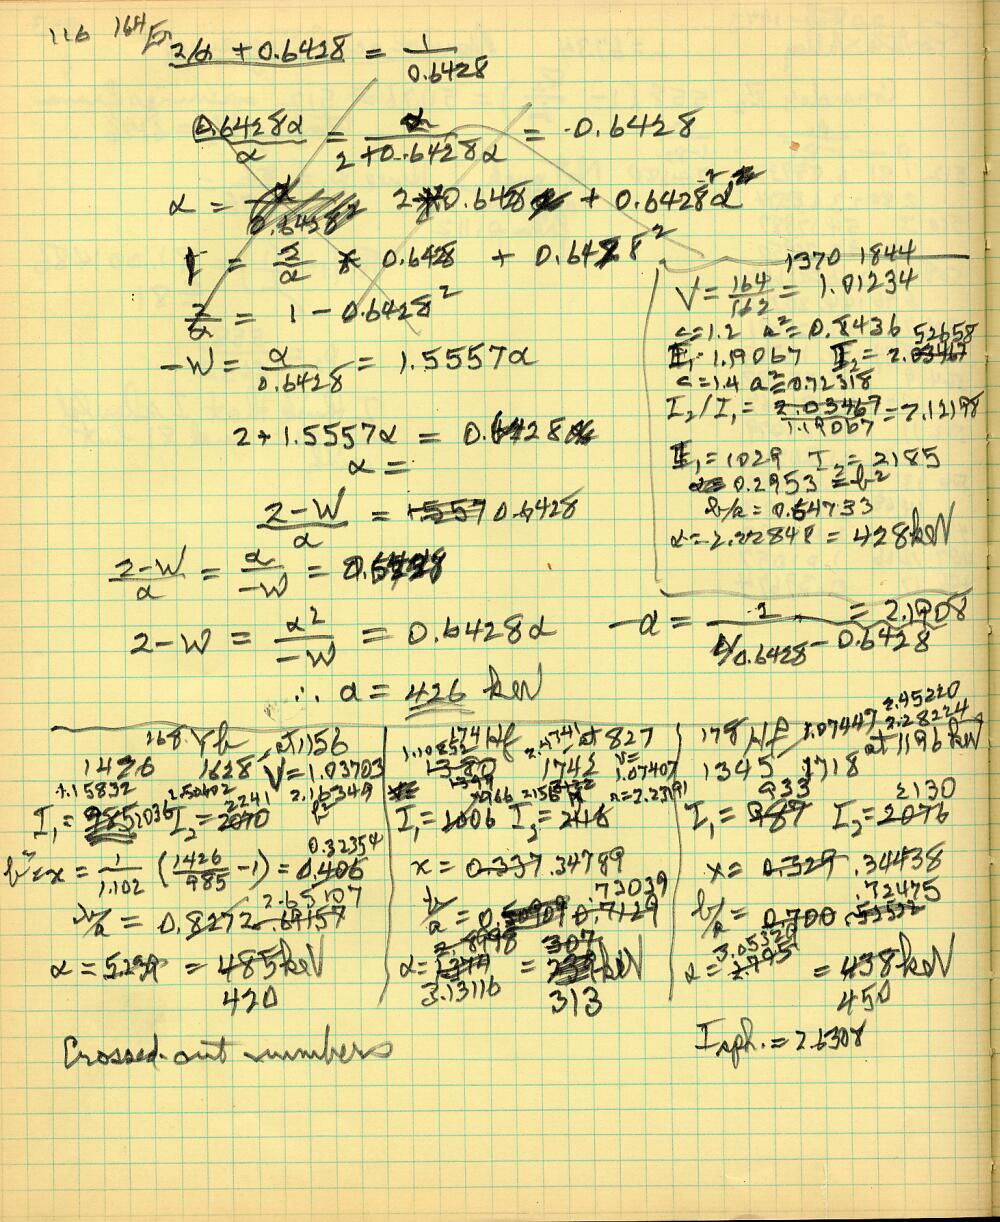 116 164Er
2/α + 0.6428 = 1/0.6428
0.6428α/α = α/(2 + 0.6428α) = 0.6428
α = 2 0.6428 + 0.6428²α
1 = 2/α × 0.6428 + 0.6428²
2/α = 1 - 0.6428²
-W = α/0.6428 = 1.5557α
2 + 1.5557α = 0.6428α
α =
(2-W)/α = 0.6428
(2-W)/α = α/-W = 0.6428
2-W = α²/-W = 0.6428α
-α = 1/(1/0.6428 - 0.6428) = 2.1908
∴ α = 426 keV
1370 1844
V = 164/162 = 1.01234
c=1.2 a²=0.8436 52658
I₁=1.19067 I₂=2.03467
c=1.4 a²=0.72318
I₂/I₁ = 2.03467/1.19067 = 2.12198
I₁=1029 I₂=2185
α=0.2953=b²
b/a=0.54733
α=2.22848=428keV
168 Yb at 1156
1426 1628 V=1.03703
1.15832 2.50402 2.16349
2036 2241 b²
I₁=985 I₂=2070
0.32354
b²=x=1/1.102 (1426/985 -1)=0.406
2.65107
b/a=0.8272 .69157
= 485keV
420
174 Hf at 827
1.10852 2.4741
1380 1742 V=1.07407
2.156
I₁=1006 I₂=2118
x=0.337 .34789
.73039
b/a= 0.7129
307
α= = keV
3.13116 313
178 Hf 1.07447 2.45220
2.28224
at 1196 keV
1345 1718
933 2130
I₁=987 I₂=2076
x=0.329 .34438
.72475
b/a=0.700 .53532
3.05329
α=2.795 = 438keV
450
I sph.=2.6308
Crossed-out numbers